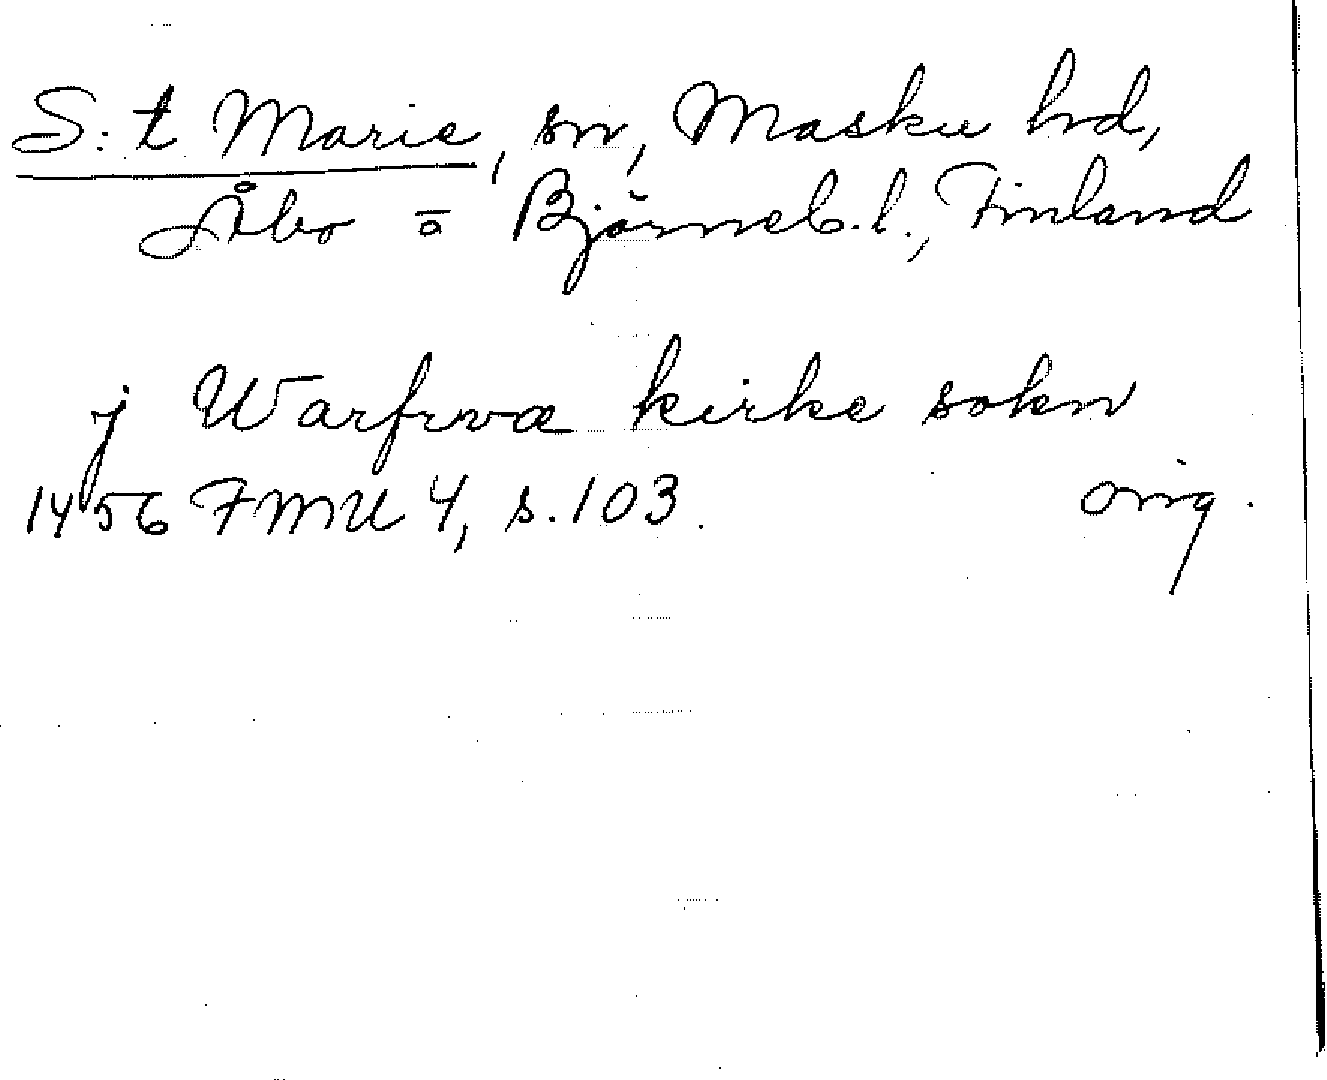 S:t Marie, sn, Masku hd,
Åbo o Björneb. l., Finland
j Warfrwæ kirke sokn
1456 FMU 4, s. 103. orig.